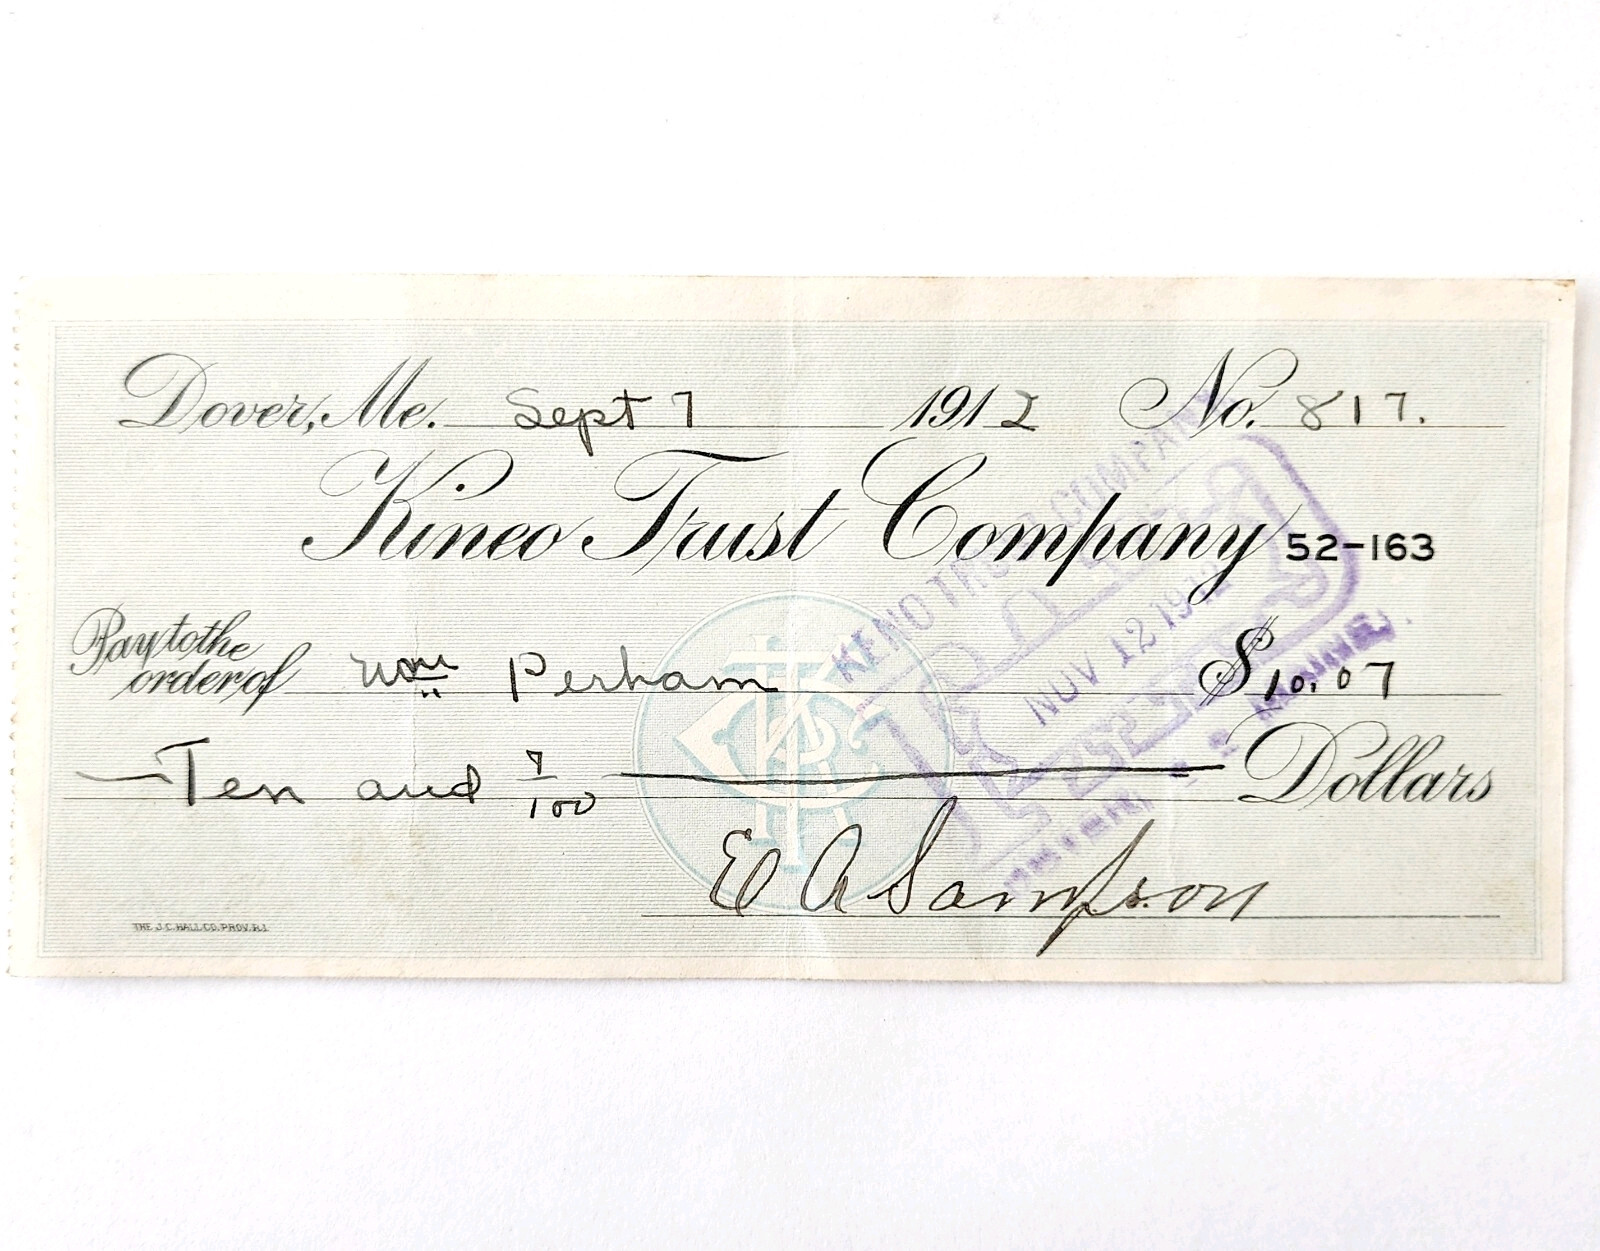 Dover, Me. Sept 7 1912 No. 817.
Kineo Trust Company 52-163
Pay to the
order of Wm Perham $10.07
Ten and 7/100 Dollars
E A Sampson
THE J.C. HALL CO. PROV. R.I.
COMPANY
NOV 12 1912
PAID
MAINE.